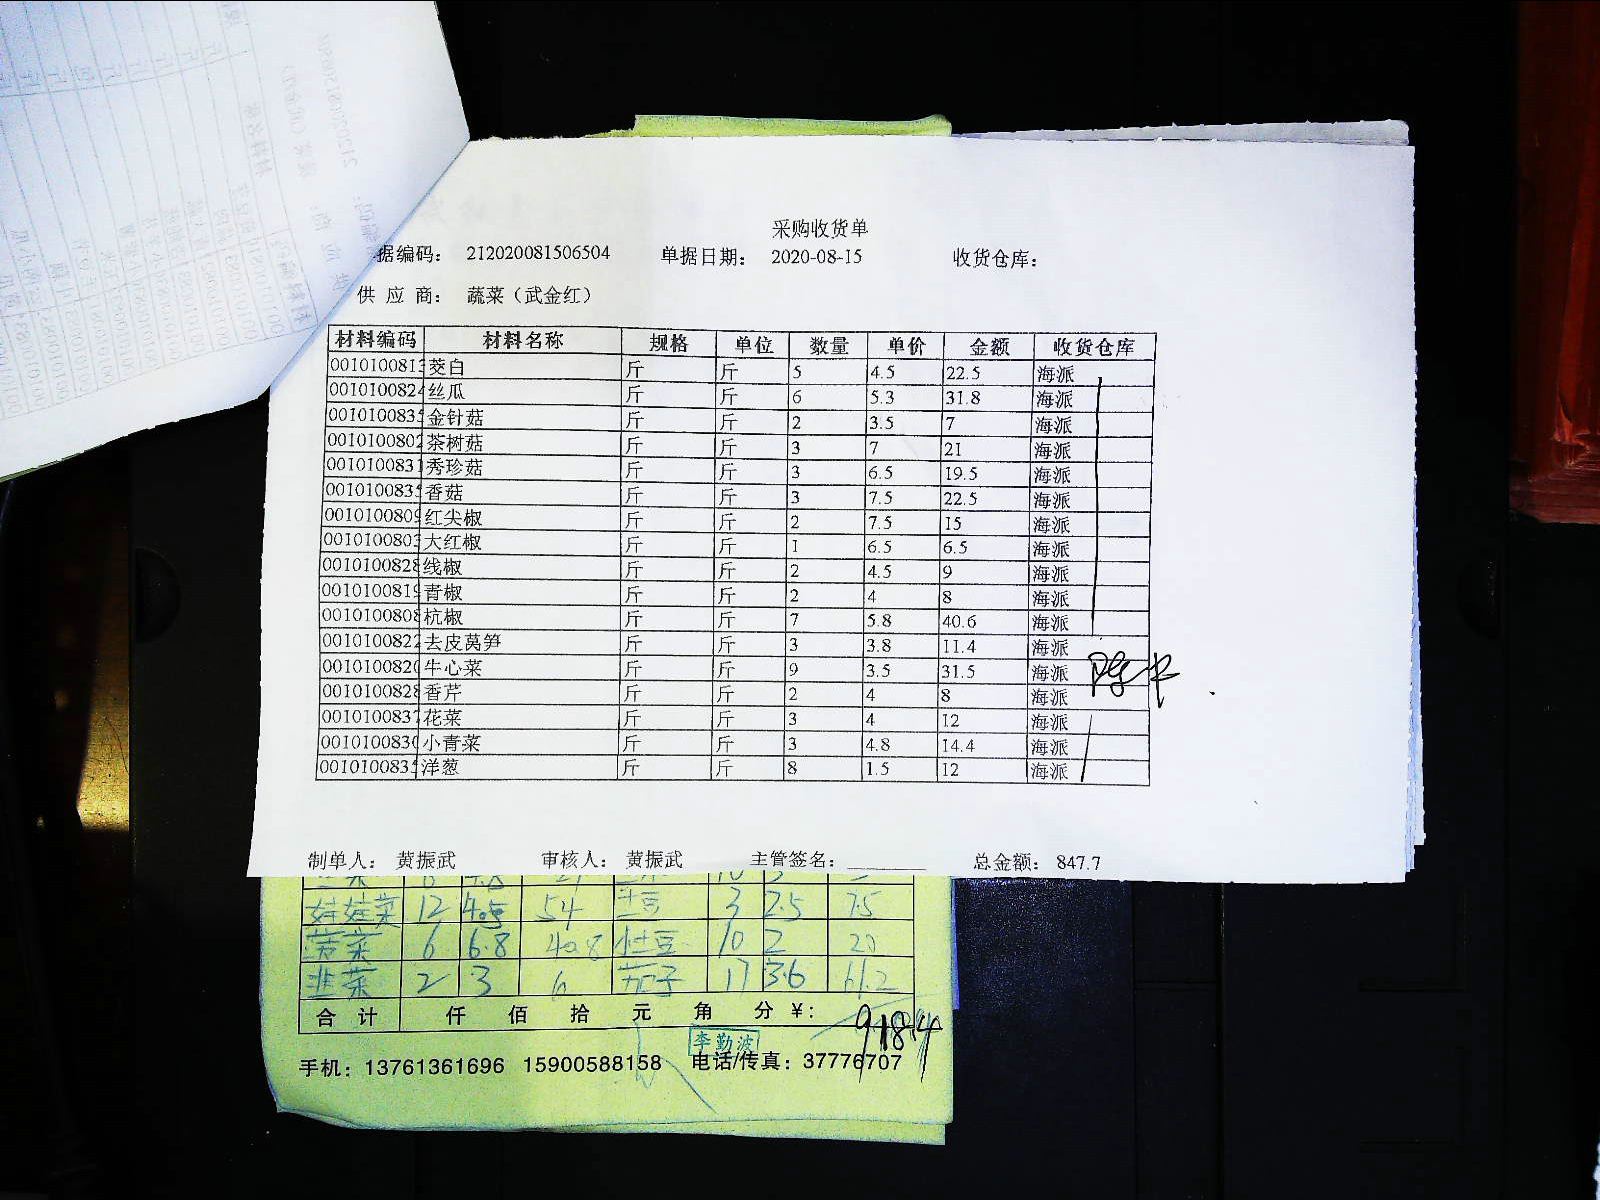 采购收货单
据编码： 212020081506504 单据日期： 2020-08-15 收货仓库：
供 应 商： 蔬菜（武金红）
材料编码 材料名称 规格 单位 数量 单价 金额 收货仓库
001010081 茭白 斤 斤 5 4.5 22.5 海派
001010082 丝瓜 斤 斤 6 5.3 31.8 海派
001010083 金针菇 斤 斤 2 3.5 7 海派
001010080 茶树菇 斤 斤 3 7 21 海派
001010083 秀珍菇 斤 斤 3 6.5 19.5 海派
001010083 香菇 斤 斤 3 7.5 22.5 海派
001010080 红尖椒 斤 斤 2 7.5 15 海派
001010080 大红椒 斤 斤 1 6.5 6.5 海派
001010082 线椒 斤 斤 2 4.5 9 海派
001010081 青椒 斤 斤 2 4 8 海派
001010080 杭椒 斤 斤 7 5.8 40.6 海派
001010082 去皮莴笋 斤 斤 3 3.8 11.4 海派
001010082 牛心菜 斤 斤 9 3.5 31.5 海派
001010082 香芹 斤 斤 2 4 8 海派
001010083 花菜 斤 斤 3 4 12 海派
001010083 小青菜 斤 斤 3 4.8 14.4 海派
001010083 洋葱 斤 斤 8 1.5 12 海派
制单人： 黄振武 审核人： 黄振武 主管签名： 总金额： 847.7
娃娃菜 12 4.5 54 土豆 3 2.5 7.5
菠菜 6 6.8 40.8 小土豆 10 2 20
韭菜 2 3 6 茄子 17 3.6 61.2
合 计 仟 佰 拾 元 角 分 ¥: 918.4
李勤波
手机：13761361696 15900588158 电话/传真：37776707